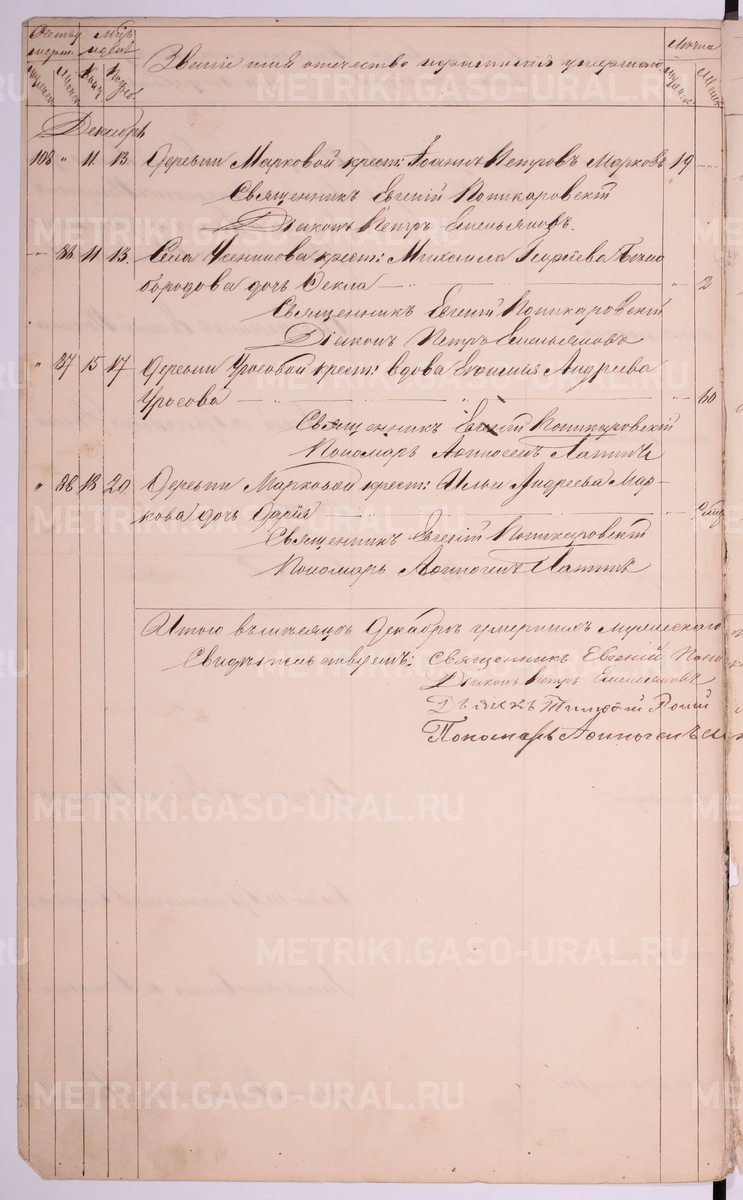 Счетъ умерш. Мѣс. и дней
Званіе имя отечество и фамилія умершаго
Лѣта
Декабрь
108 " 11 13. Деревни Марковой крест: Іоаннъ Петровъ Марковъ 19 —
Священникъ Евгеній Попикаровскій
Діаконъ Петръ Емельяновъ.
" 86 11 13. Села крест: Михаила Георгіева Бѣло
бородова дочь Ѳекла — " 2
Священникъ Евгеній Попикаровскій
Діаконъ Петръ Емельяновъ
" 87 15 17 Деревни Уросовой крест: вдова Евфимія Андреева
Уросова — " — 60
Священникъ Евгеній Попикаровскій
Пономарь Аѳиногенъ Лапинъ
" 88 18 20. Деревни Марковой крест: Ильи Андреева Мар-
кова дочь Дарія —
Священникъ Евгеній Попикаровскій
Пономарь Аѳиногенъ Лапинъ
Итого въ мѣсяцѣ Декабрѣ умершихъ мужескаго
Свидѣтельствуемъ: Священникъ Евгеній Попи
Діаконъ Петръ Емельяновъ
Дьячекъ Тимоѳей
Пономарь Аѳиногенъ
METRIKI.GASO-URAL.RU